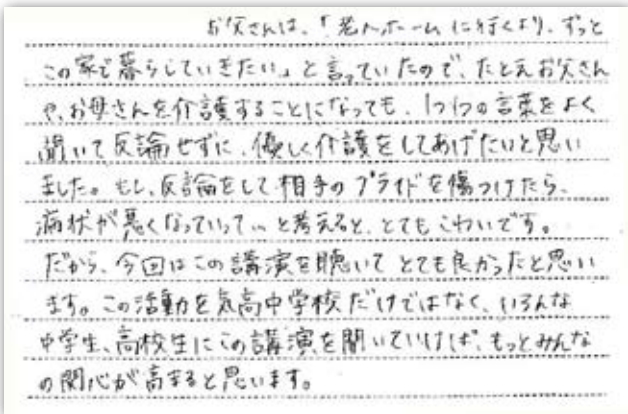 お父さんは、「老人ホームに行くより、ずっと
この家で暮らしていきたい」と言っていたので、たとえお父さん
や、お母さんを介護することになっても、1つ1つの言葉をよく
聞いて反論せずに、優しく介護をしてあげたいと思い
ました。もし、反論をして相手のプライドを傷つけたら、
病状が悪くなっていって…と考えると、とてもこわいです。
だから、今回はこの講演を聴いてとても良かったと思い
ます。この活動を気高中学校だけではなく、いろんな
中学生、高校生にこの講演を聞いていけば、もっとみんな
の関心が高まると思います。